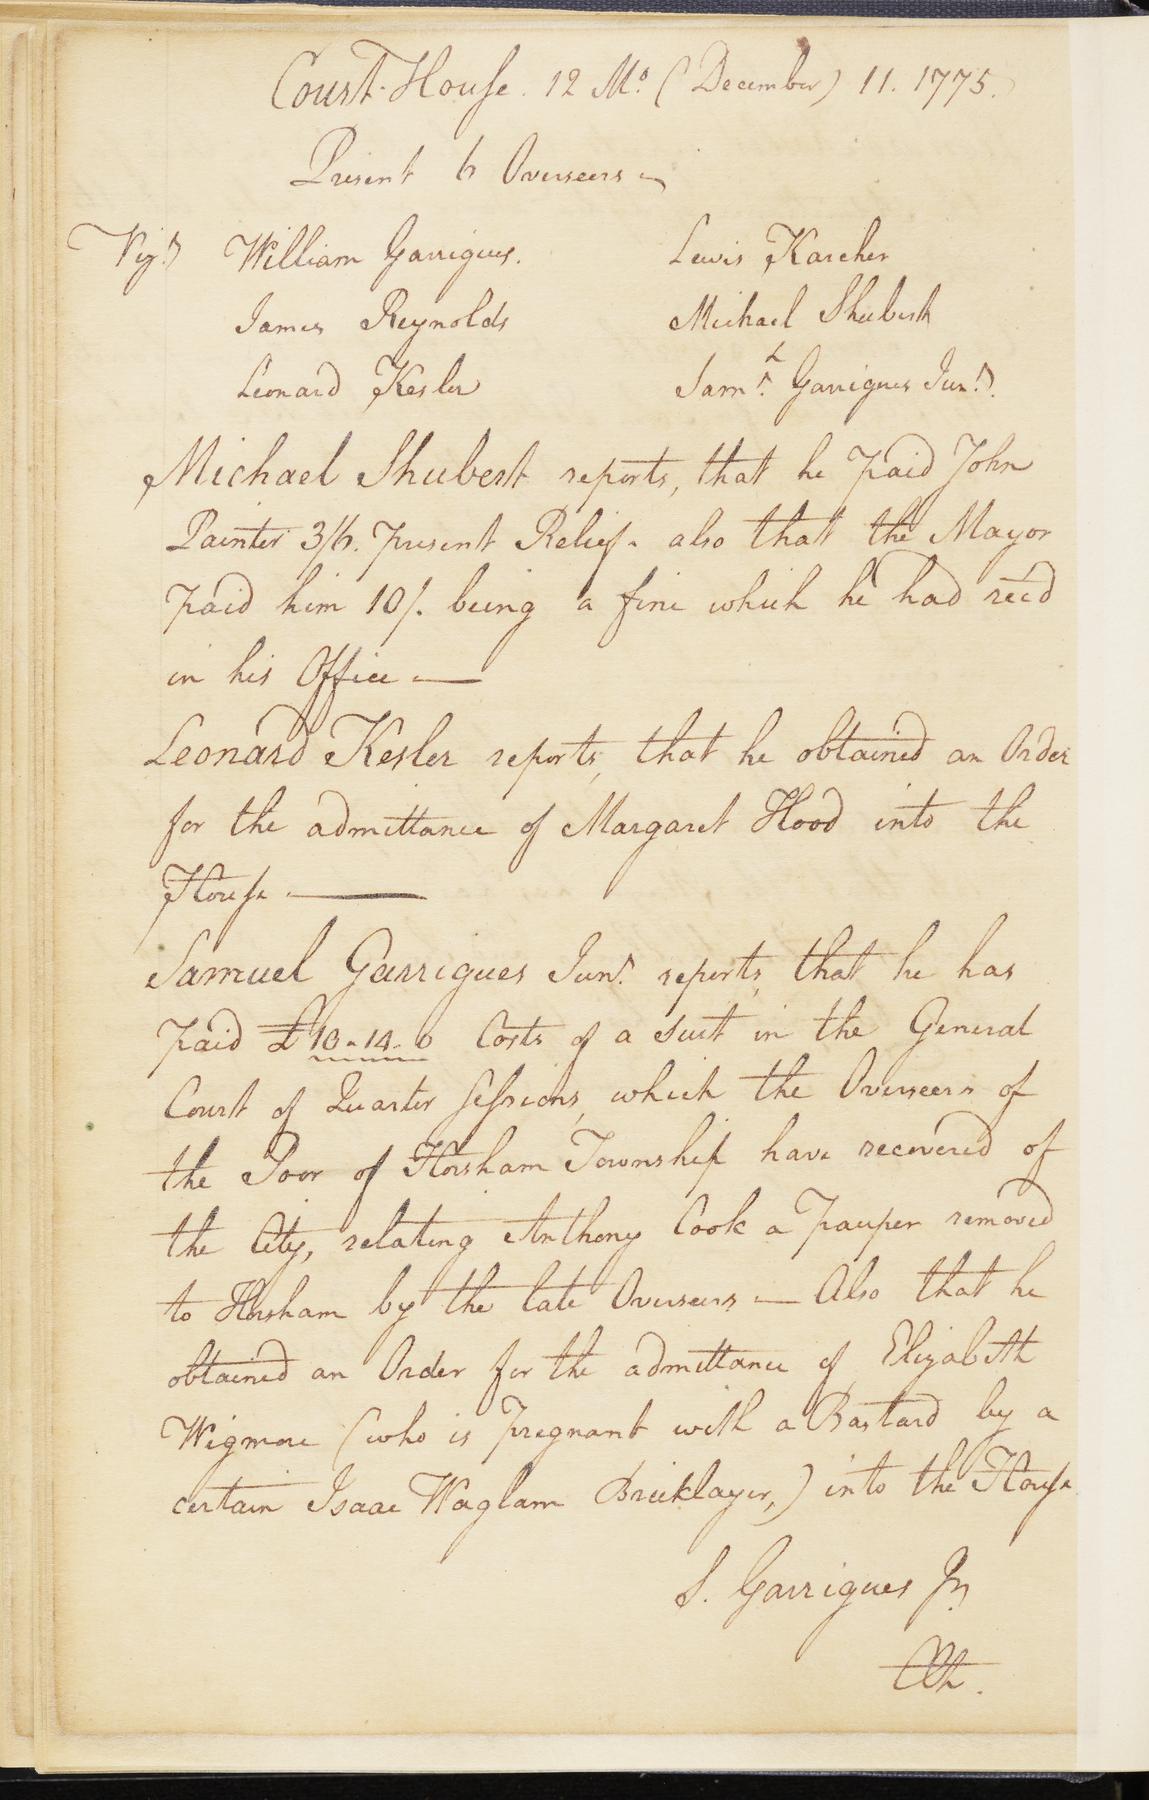 Court-House. 12 Mo. (December) 11. 1775.
Present 6 Overseers
Vizt. William Garrigues. Lewis Karcher
James Reynolds Michael Shubert
Leonard Kesler Saml. Garrigues Junr.
Michael Shubert reports, that he paid John
Painter 3/6. present Relief. also that the Mayor
paid him 10/. being a fine which he had rec'd
in his Office —
Leonard Kesler reports, that he obtained an Order
for the admittance of Margaret Hood into the
House —
Samuel Garrigues Junr. reports, that he has
paid £10-14-0 Costs of a Suit in the General
Court of Quarter Sessions, which the Overseers of
the Poor of Horsham Township have recovered of
the City, relating Anthony Cook a Pauper removed
to Horsham by the late Overseers — Also that he
obtained an Order for the admittance of Elizabeth
Wigmore (who is Pregnant with a Bastard by a
certain Isaac Waglam Bricklayer,) into the House
S. Garrigues Jr.
Clk.